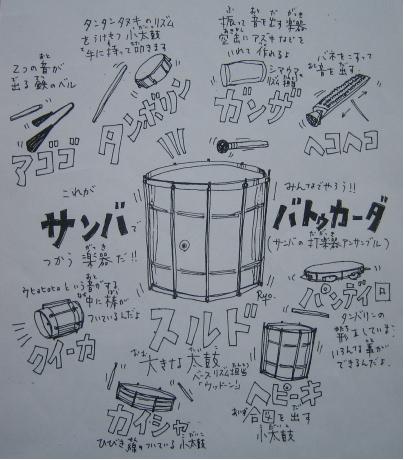 タンタンタヌキのリズム
をうけもつ小太鼓
手に持って叩きます
タンボリン
ふ おと だ がっき
振って音を出す楽器
空缶にアズキなどを
いれて作れるよ
ガンザ
シマウマの
リズム担当
バネをこすって
おと だ
音を出す
ヘコヘコ
おと
2つの音が
で てつ
出る鉄のベル
アゴゴ
これが
サンバで
つかう楽器だ!!
がっき
みんなでやろう!!
バトゥカーダ
だがっき
(サンバの打楽器アンサンブル)
おと
という音がする
中に棒が
ついているんだよ
クイーカ
Ryo.
スルド
おお たいこ
大きな太鼓
ベースリズム担当
「ウッドーン」
パンデイロ
タンバリンの
形をしています
いろんな事が
できるんだよ
カイシャ
ひびき線のついている小太鼓
ヘピーキ
あいず だ
合図を出す
小太鼓